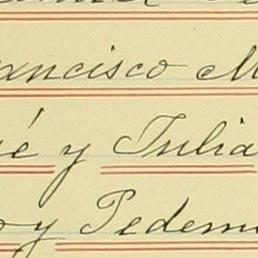 ancisco M
é y Julia
y Pedem